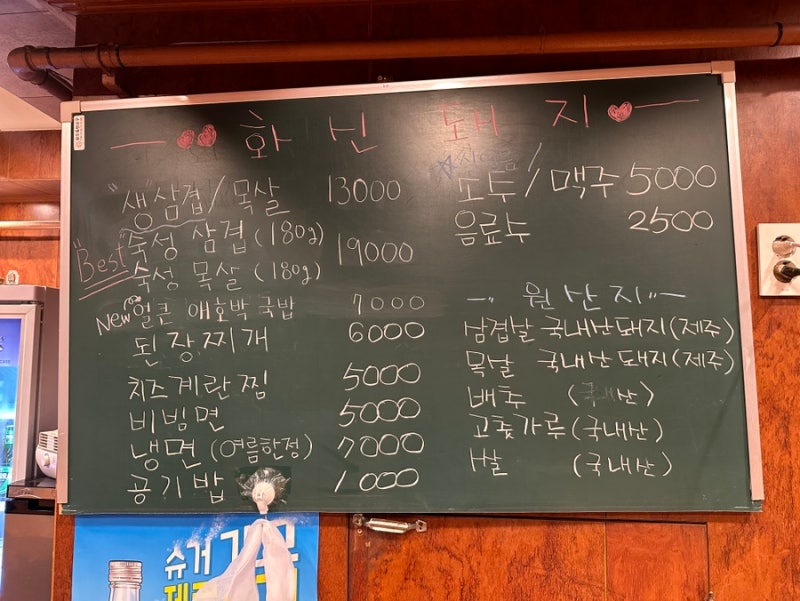 화 신 돼 지
"생"삼겹/목살 13000
"Best" 숙성 삼겹(180g)
숙성 목살(180g) 19000
New 얼큰 애호박 국밥 7000
된장찌개 6000
치즈계란찜 5000
비빔면 5000
냉면(여름한정) 7000
공기밥 1000
소주/맥주 5000
음료수 2500
-"원산지"-
삼겹살 국내산돼지(제주)
목살 국내산돼지(제주)
배추 (국내산)
고춧가루(국내산)
쌀 (국내산)
슈거